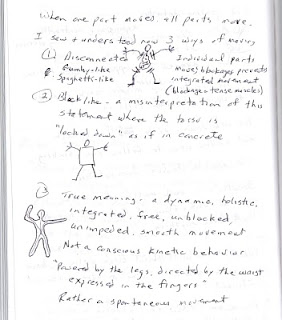 When one part moves all parts move.
I saw & understood now 3 ways of moving
(1) Disconnected
Gumby-like
Spaghetti-like
Individual parts
move; blockages prevents
integrated movement
(blockages = tense muscles)
(2) Block like - a misinterpretation of this
statement where the torso is
"locked down" as if in concrete
3
True meaning - a dynamic, holistic,
integrated, free, unblocked,
unimpeded, smooth movement
Not a conscious kinetic behavior
"Powered by the legs, directed by the waist
expressed in the fingers"
Rather a spontaneous movement